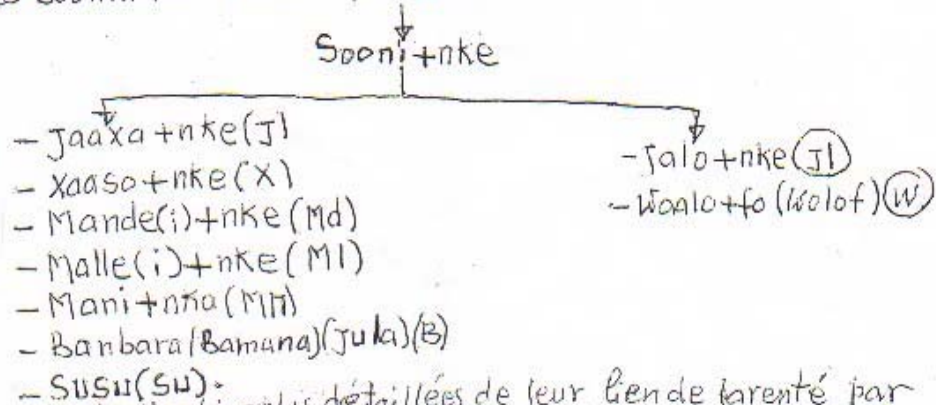 Sooni+nke
- Jaaxa+nke(J)
- Xaaso+nke(X)
- Mande(i)+nke(Md)
- Malle(i)+nke(Ml)
- Mani+nka(Mn)
- Banbara(Bamana)(Jula)(B)
- SUSU(SU).
- Jalo+nke(Jl)
- Waalo+fo(Wolof)(W)
détaillées de leur lien de parenté par